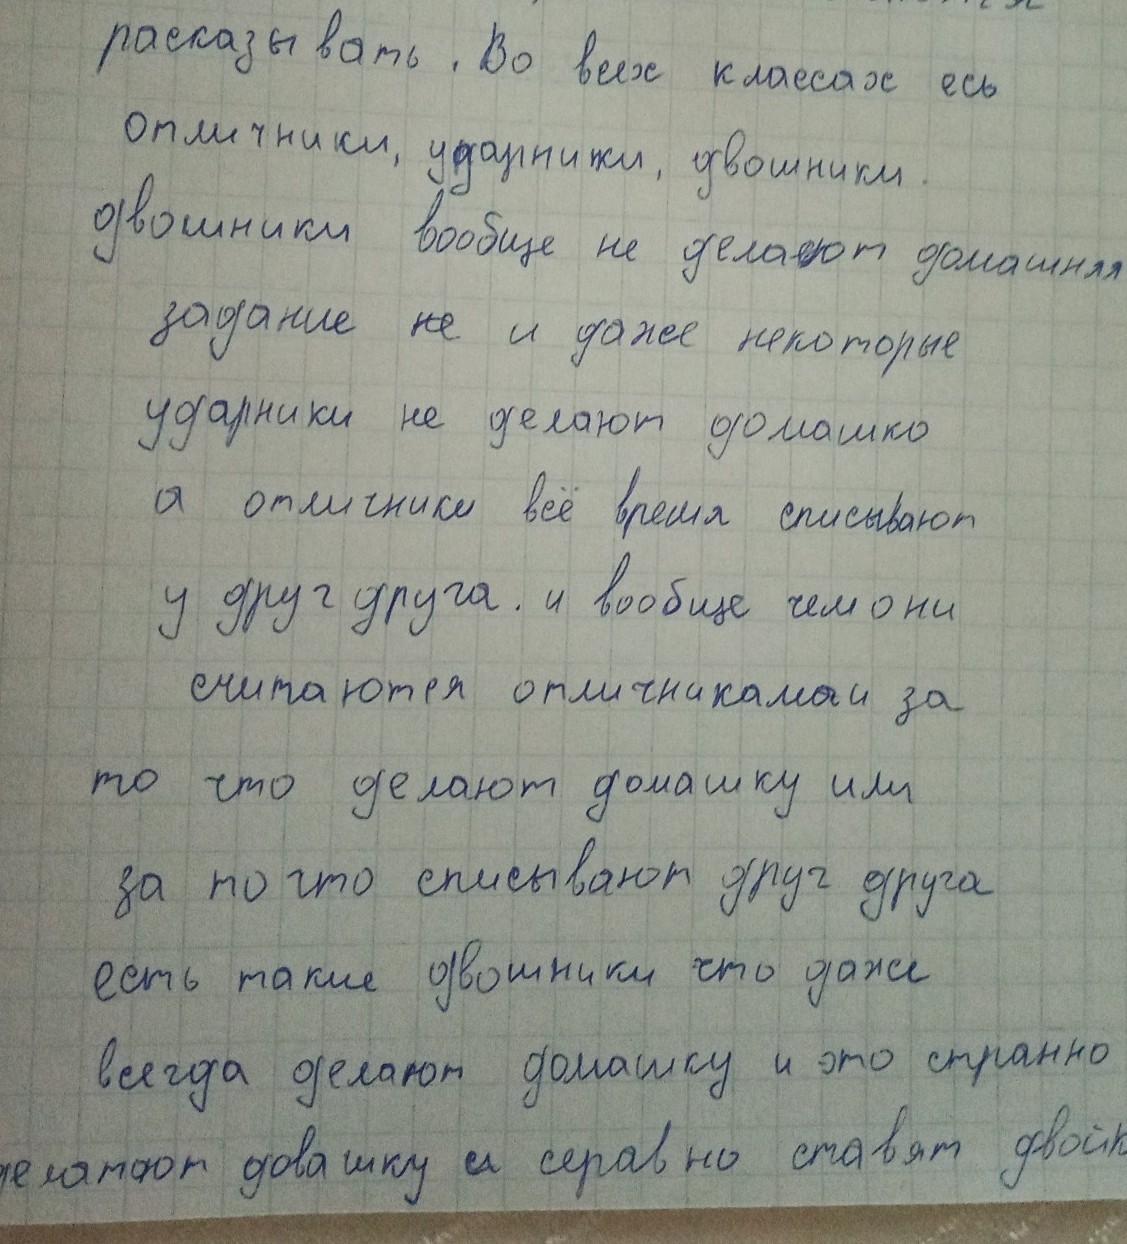 расказывать. Во всех классах есь
отличники, ударники, двошники.
двошники вообще не делают домашняя
задание не и даже некоторые
ударники не делают домашко
а отличники всё время списывают
у друг друга. и вообще чем они
считаются отличниками за
то что делают домашку или
за то что списывают друг друга
есть такие двошники что даже
всегда делают домашку и это странно
делают довашку и серавно ставят двойк